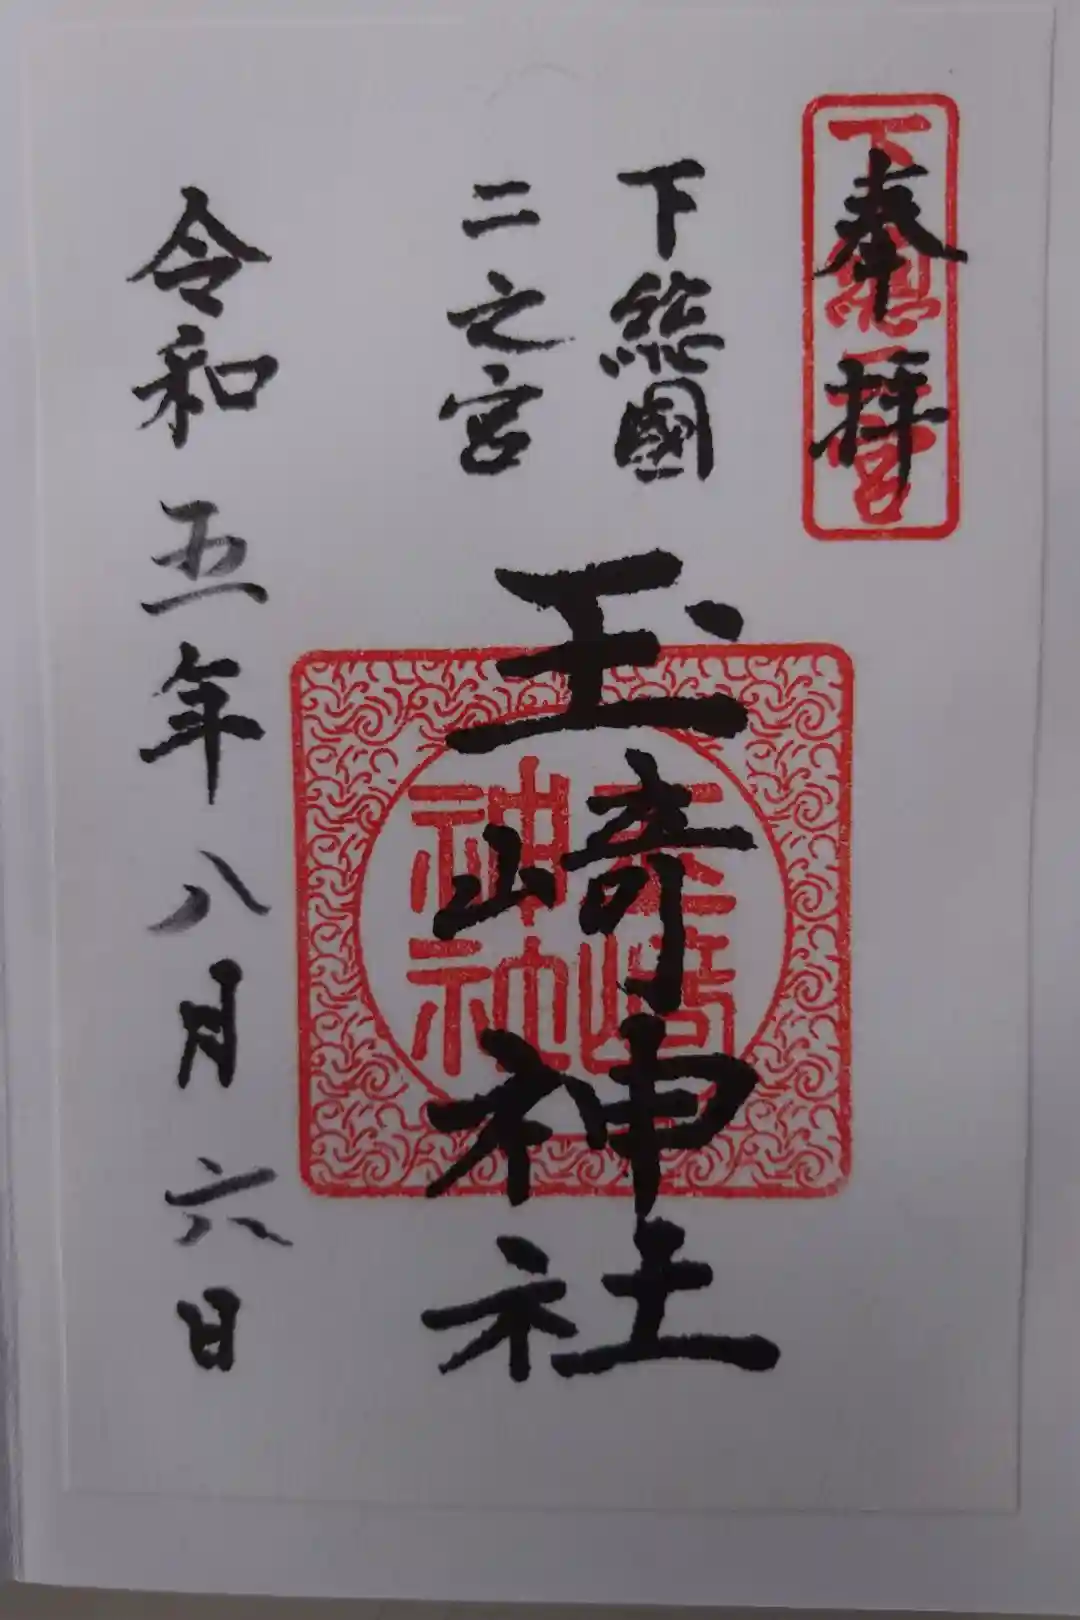 奉拝
下総國
二之宮
玉﨑神社
玉﨑
神社
令和五年八月六日